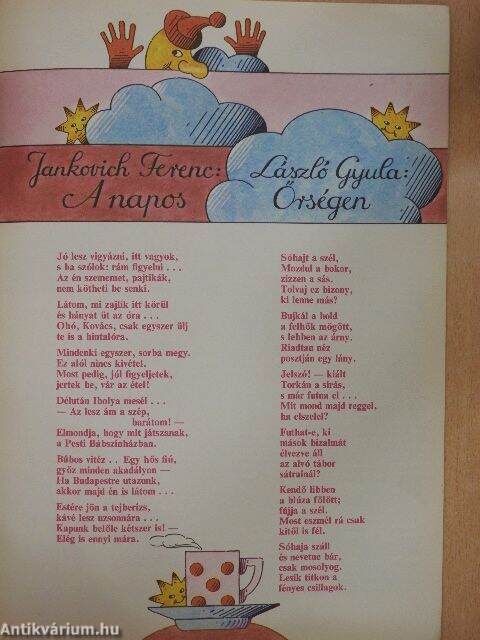 Jankovich Ferenc:
A napos
Jó lesz vigyázni, itt vagyok,
s ha szólok: rám figyelni . . .
Az én szememet, pajtikák,
nem kötheti be senki.
Látom, mi zajlik itt körül
és hányat üt az óra . . .
Ohó, Kovács, csak egyszer ülj
te is a hintalóra.
Mindenki egyszer, sorba megy.
Ez alól nincs kivétel.
Most pedig, jól figyeljetek,
jertek be, vár az étel!
Délután Ibolya mesél . . .
— Az lesz ám a szép,
barátom! —
Elmondja, hogy mit játszanak,
a Pesti Bábszínházban.
Búbos vitéz . . Egy hős fiú,
győz minden akadályon —
Ha Budapestre utazunk,
akkor majd én is látom . . .
Estére jön a tejberizs,
kávé lesz uzsonnára . . .
Kapunk belőle kétszer is! —
Elég is ennyi mára.
László Gyula:
Őrségen
Sóhajt a szél,
Mozdul a bokor,
zizzen a sás.
Tolvaj ez bizony,
ki lenne más?
Bujkál a hold
a felhők mögött,
s lebben az árny.
Riadtan néz
posztján egy lány.
Jelszó! — kiált
Torkán a sírás,
s már futna el . . .
Mit mond majd reggel,
ha elszelel?
Futhat-e, ki
mások bizalmát
élvezve áll
az alvó tábor
sátrainál?
Kendő libben
a blúza fölött;
fújja a szél.
Most eszmél rá csak
kitől is fél.
Sóhaja száll
és nevetne bár,
csak mosolyog.
Lesik titkon a
fényes csillagok.
Antikvárium.hu